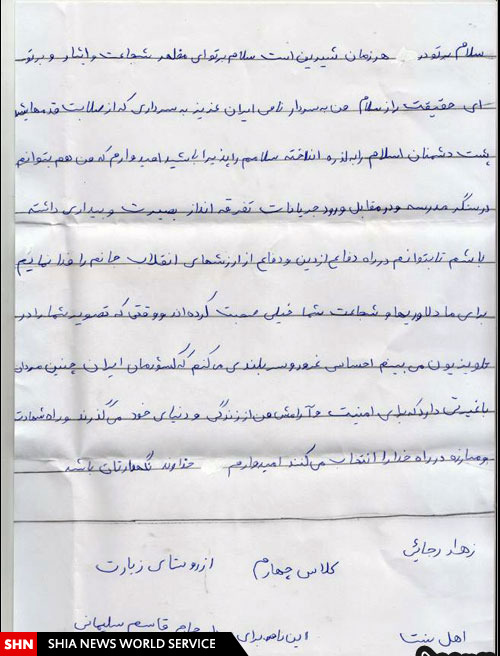 سلام بر تو در هر زمان شیرین است سلام بر تو ای مظهر شجاعت و ایثار و بر تو
ای حقیقت راز سلام من به سردار نامی ایران عزیز به سرداری که از صلابت قدمهایش
پشت دشمنان اسلام را به لرزه انداخته سلامم را پذیرا باشید امیدوارم که من هم بتوانم
در سنگر مدرسه و در مقابل ورود جریانات تفرقه انداز بصیرت و بیداری داشته
باشم تا بتوانم در راه دفاع از دین و دفاع از ارزشهای انقلاب جانم را فدا نمایم
برای ما دلاوریها و شجاعت شما خیلی صحبت کرده اند و وقتی که تصویر شما را در
تلویزیون می بینم احساس غرور و سربلندی می کنم که کشورمان ایران چنین مردان
باغیرتی دارد که برای امنیت و آرامش من از زندگی و دنیای خود می گذرند و راه شهادت
و مبارزه در راه خدا را انتخاب می کنند امیدوارم خداوند نگهدارتان باشد
زهرا رجائی کلاس چهارم از روستای زیارت
اهل سنت این نامه برای حاج قاسم سلیمانی
SHN SHIA NEWS WORLD SERVICE